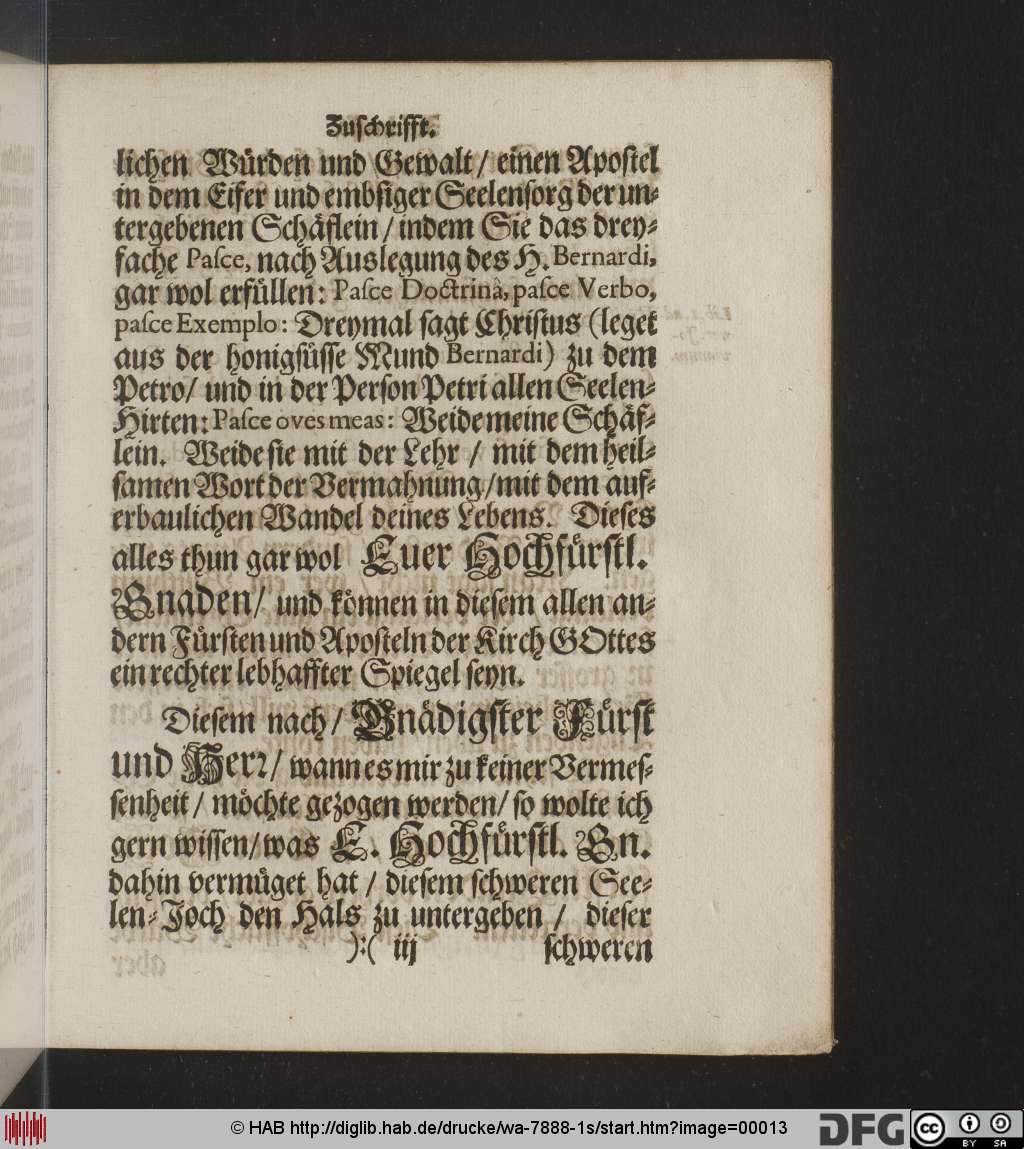 Zuſchrifft.
lichen Würden und Gewalt / einen Apoſtel
in dem Eifer und embſiger Seelenſorg der un⸗
tergebenen Schäflein / indem Sie das drey⸗
fache Paſce, nach Auslegung des H. Bernardi,
gar wol erfüllen: Paſce Doctrinâ, paſce Verbo,
paſce Exemplo: Dreymal ſagt Chriſtus (leget
aus der honigſüſſe Mund Bernardi) zu dem
Petro/ und in der Perſon Petri allen Seelen⸗
Hirten: Paſce oves meas: Weide meine Schäf⸗
lein. Weide ſie mit der Lehr / mit dem heil⸗
ſamen Wort der Vermahnung/mit dem auf⸗
erbaulichen Wandel deines Lebens. Dieſes
alles thun gar wol Euer Hochfürſtl.
Gnaden/ und können in dieſem allen an⸗
dern Fürſten und Apoſteln der Kirch GOttes
ein rechter lebhaffter Spiegel ſeyn.
Dieſem nach/ Gnädigſter Fürſt
und Herꝛ/ wann es mir zu keiner Vermeſ⸗
ſenheit / möchte gezogen werden/ ſo wolte ich
gern wiſſen/was E. Hochfürſtl. Gn.
dahin vermüget hat / dieſem ſchweren See⸗
len⸗Joch den Hals zu untergeben / dieſer
):( iij ſchweren
© HAB http://diglib.hab.de/drucke/wa-7888-1s/start.htm?image=00013
DFG
cc BY SA